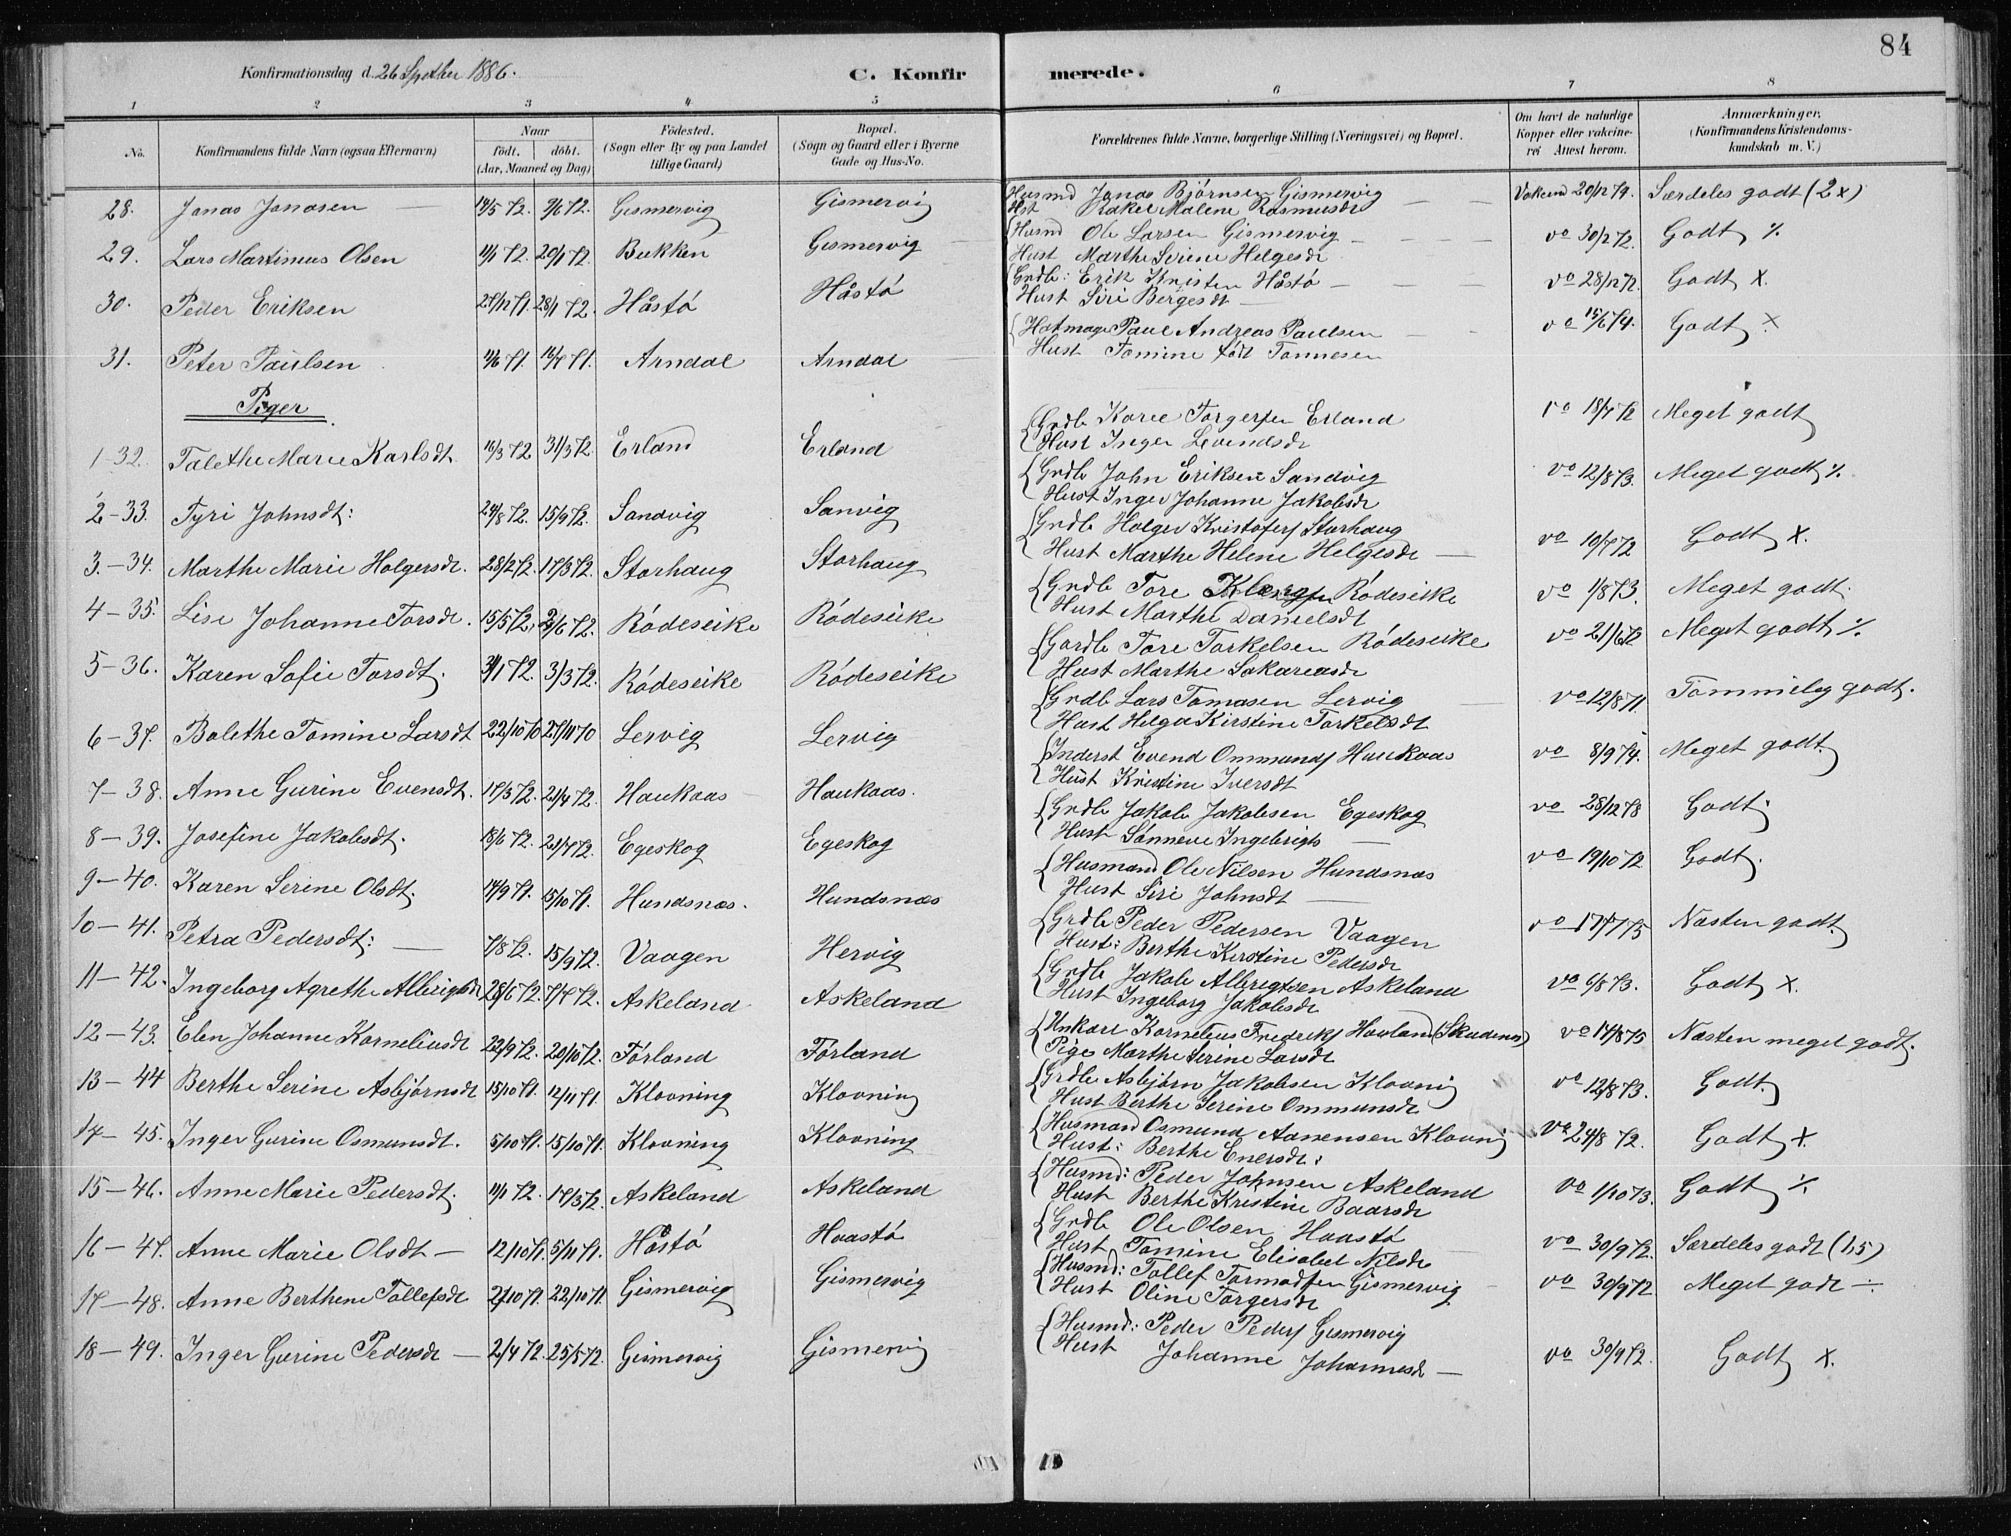 84
Konfirmationsdag d. 26 Septbr 1886.
C. Konfirmerede.
1 2 3 4 5 6 7 8
No. Konfirmandens fulde Navn (ogsaa Efternavn) Naar födt. döbt. (Aar, Maaned og Dag) Födested. (Sogn eller By og paa Landet tillige Gaard) Bopæl. (Sogn og Gaard eller i Byerne Gade og Hus-No. Forældrenes fulde Navne, borgerlige Stilling (Næringsvei) og Bopæl. Om havt de naturlige Kopper eller vakcineret Attest herom. Anmærkninger. (Konfirmandens Kristendomskundskab m. V.)
28. Jonas Jonasen 72. 9/6 72. Gismervig Gismervig Husmd Jonas Bjørnsen Gismervig Vakcind 20/12 74. Særdeles godt (2x)
Hst Rakel Malene Rasmusdt
29. Lars Martinus Olsen 11/1 72. 20/1 72. Bukken Gismervig Husmd Ole Larsen Gismervig vo 30/7 72. Godt %
Hust Marthe Serine Helgesdt
30. Peder Eriksen 27/12 71. 28/1 72. Håstø Håstø Grdb: Erik Kristen Håstø vo 28/12 72. Godt x.
Hust Siri Bergesdt
31. Peter Paulsen 11/6 71. 16/7 71. Arndal Arndal Paul Andreas Paulsen vo 15/6 74. Godt x
Hust Tomine født Tonnesen
Piger
1-32. Talethe Marie Karlsdt. 10/3 72 31/3 72. Erland Erland Grdb Karl Torgersen Erland vo 18/7 72 Meget godt
Hust Inger Svendsdt
2-33. Tyri Johnsdt: 24/8 72. 15/9 72. Sandvig Sanvig Grdb John Eriksen Sandvig vo 12/8 73. Meget godt %
Hust Inger Johanne Jakobsdt
3.-34. Marthe Marie Holgersdt. 28/2 72. 17/3 72. Storhaug Storhaug Grdb Holger Kristofers Storhaug vo 10/7 72 Godt x.
Hust Marthe Helene Helgesdt
4-35. Lise Johanne Torsdt. 15/5 72. 2/6 72. Rødeseike Rødeseike Grdb Tore Rødeseike vo 1/8 73. Meget godt.
Hust Marthe Danielsdt
5-36. Karen Sofie Torsdt. 3/1 72. 3/3 72. Rødeseike Rødeseike Gardb Tore Torkelsen Rødeseike vo 21/6 72 Meget godt %
Hust Marthe Sakariasdt
6-37. Bolethe Tomine Larsdt 22/10 70 27/11 70 Lervig Lervig Grdb Lars Tomasen Lervig vo 12/8 71. Temmelig godt.
Hust Helga Kirstine Torkelsdt
7-38. Anne Gurine Evensdt. 17/3 72. 21/4 72. Haukaas Haukaas. Inderst Evend Ommunds Haukaas vo 8/9 74. Meget godt.
Hust Kristine Iversdt
8-39. Josefine Jakobsdt. 18/6 72. 21/7 72. Egeskog Egeskog Grdb Jakob Jakobsen Egeskog vo 28/12 78 Godt.
Hust Sønneve Ingebrigts
9-40. Karen Serine Olsdt. 14/9 71. 15/10 71. Hundsnæs. Hundsnæs Husmand Ole Nilsen Hundsnæs vo 19/10 72. Godt.
Hust Siri Johnsdt
10-41. Petra Pedersdt: 7/8 72. 15/9 72. Vaagen Hervig Grdb Peder Pedersen Vaagen vo 17/7 75 Næsten godt
Hust: Berthe Kirstine Pedersdt
11-42. Ingeborg Agrethe Albrigtsdt 28/6 72. 7/7 72. Askeland Askeland Grdb Jakob Albrigtsen Askeland vo 6/8 73. Godt x.
Hust Ingeborg Jakobsdt
12-43. Elen Johanne Korneliusdt 22/9 72. 20/10 72. Førland Førland Unkarl Kornelius Frederiks Hovland (Skudenes) vo 14/8 75 Næsten meget godt.
Pige Marthe Serine Larsdt
13-44 Berthe Serine Asbjørnsdt 15/10 71. 12/11 71. Klovning Klovning Grdb Asbjørn Jakobsen Klovning vo 12/8 73. Godt.
Hust Berthe Serine Ommunsdt
14-45. Inger Gurine Osmunsdt. 5/10 71. 15/10 71. Klovning Klovning Husmand Osmund Aanensen Klovning vo 24/8 72. Godt x.
Hust: Berthe Enersdt:
15-46. Anne Marie Pedersdt. 11/1 72. 17/3 72. Askeland Askeland Husmd: Peder Johnsen Askeland vo 1/10 73. Godt %
Hust Berthe Kristine Baarsdt
16-47. Anne Marie Olsdt 12/10 71. 5/11 71. Håstø Haastø Grdb Ole Olsen Haastø vo 30/9 72. Særdeles godt (1,5)
Hust Tomine Elisabet Nilsdt
17-48. Anne Berthene Tollefsdt 2/10 71. 22/10 71. Gismervig Gismervig Husmd: Tollef Tormodsen Gismervig vo 30/9 72 Meget godt ÷
Hust Oline Torgersdt
18-49. Inger Gurine Pedersdt 2/4 72. 25/5 72. Gismervig Gismervig Husmd: Peder Peders Gismervig vo 30/9 72. Godt x.
Hust Johanne Johannesdt